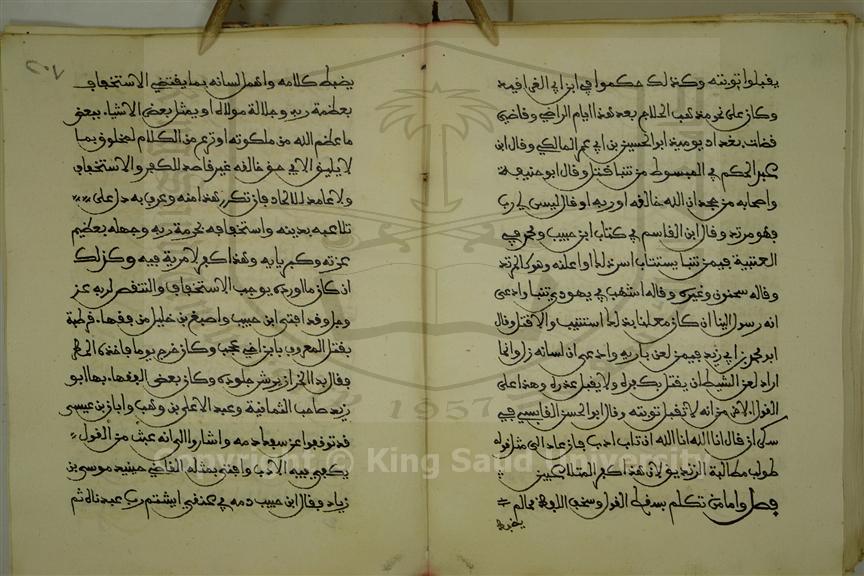 يقبلوا توبته وكذلك حكموا في ابن ابي الغرافيد
وكان على نحو مذهب الحلاج بعد هذا ايام الراضي وقاضي
قضات بغداد يوميذ ابو الحسين بن ابي عمر المالكي وقال ابن
عبد الحكم في المبسوط من تنبا قتل وقال ابو حنيفة
واصحابه من جحد ان الله خالقه او ربه او قال ليس لي رب
فهو مرتد وقال ابن القاسم في كتاب ابن حبيب ومحمد في
العتبية فيمن تنبا يستتاب اسر ذلك او اعلنه وهو كالمرتد
وقاله سحنون وغيره وقاله اشهب في يهودي تنبا وادعى
انه رسول الينا ان كان معلنا بذلك استتيب والا قتل وقال
ابو محمد بن ابي زيد فيمن لعن باريه وادعى ان لسانه زل وانما
اراد لعن الشيطان يقتل بكفره ولا يقبل عذره وهذا على
القول الاخر من انه لا تقبل توبته وقال ابو الحسن القابسي في
سكران قال انا الله انا الله ان تاب ادب فان عاد الى مثل قوله
طولب مطالبة الزنديق لان هذا كفر المتلاعبين
فصل واما من تكلم بسقط القول وسخف اللفظ ممن لم
يضبط كلامه واهمل لسانه بما يقتضي الاستخفاف
بعظمة ربه وجلالة مولاه او يمثل بعض الاشيا ببعض
ما عظم الله من ملكوته او نزع من الكلام لمخلوق بما
لا يليق الا في حق خالقه غير قاصد للكفر والاستخفاف
ولا عامد للالحاد فان تكرر هذا منه وعرف به دل على
تلاعبه بدينه واستخفافه بحرمة ربه وجهله بعظيم
عزته وكبريايه وهذا كفر لا مرية فيه وكذلك
ان كان ما اورده يوجب الاستخفاف والتنقص لربه عز
وجل وقد افتى ابن حبيب واصبغ بن خليل من فقها قرطبة
بقتل المعروف بابن اخي عجب وكان خرج يوما فاخذه المطر
فقال بدا الخراز يرش جلوده وكان بعض الفقها بها ابو
زيد صاحب الثمانية وعبد الاعلى بن وهب وابان بن عيسى
قد توقفوا عن سفك دمه واشاروا الى انه عبث من القول
يكفي فيه الادب وافتى بمثله القاضي حينيد موسى بن
زياد فقال ابن حبيب دمه في عنقي ايشتم رب عبدناه ثم